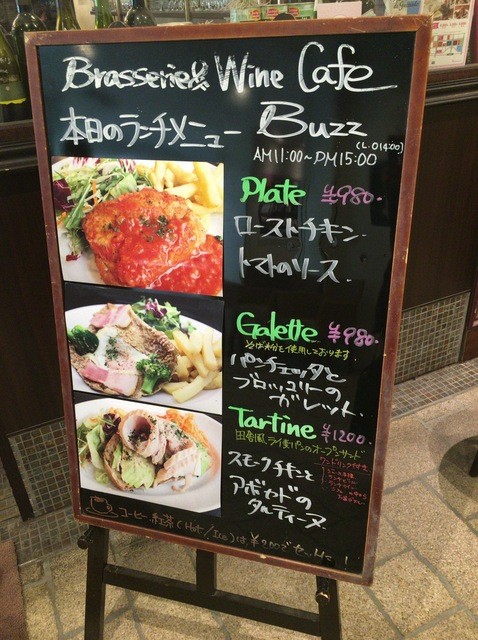 Brasserie& Wine Cafe
Buzz
本日のランチメニュー
(L.O14:00)
AM11:00~PM15:00
Plate ¥980.
ローストチキン
トマトのソース.
Galette ¥980.
そば粉を使用しております.
パンチェッタと
ブロッコリーの
ガレット.
Tartine ¥1200.
田舎風ライ麦パンのオープンサンド
ワンドリンク付き
スモークチキンと
アボカドの
タルティーヌ
コーヒー 紅茶 (Hot/Ice)は ¥200